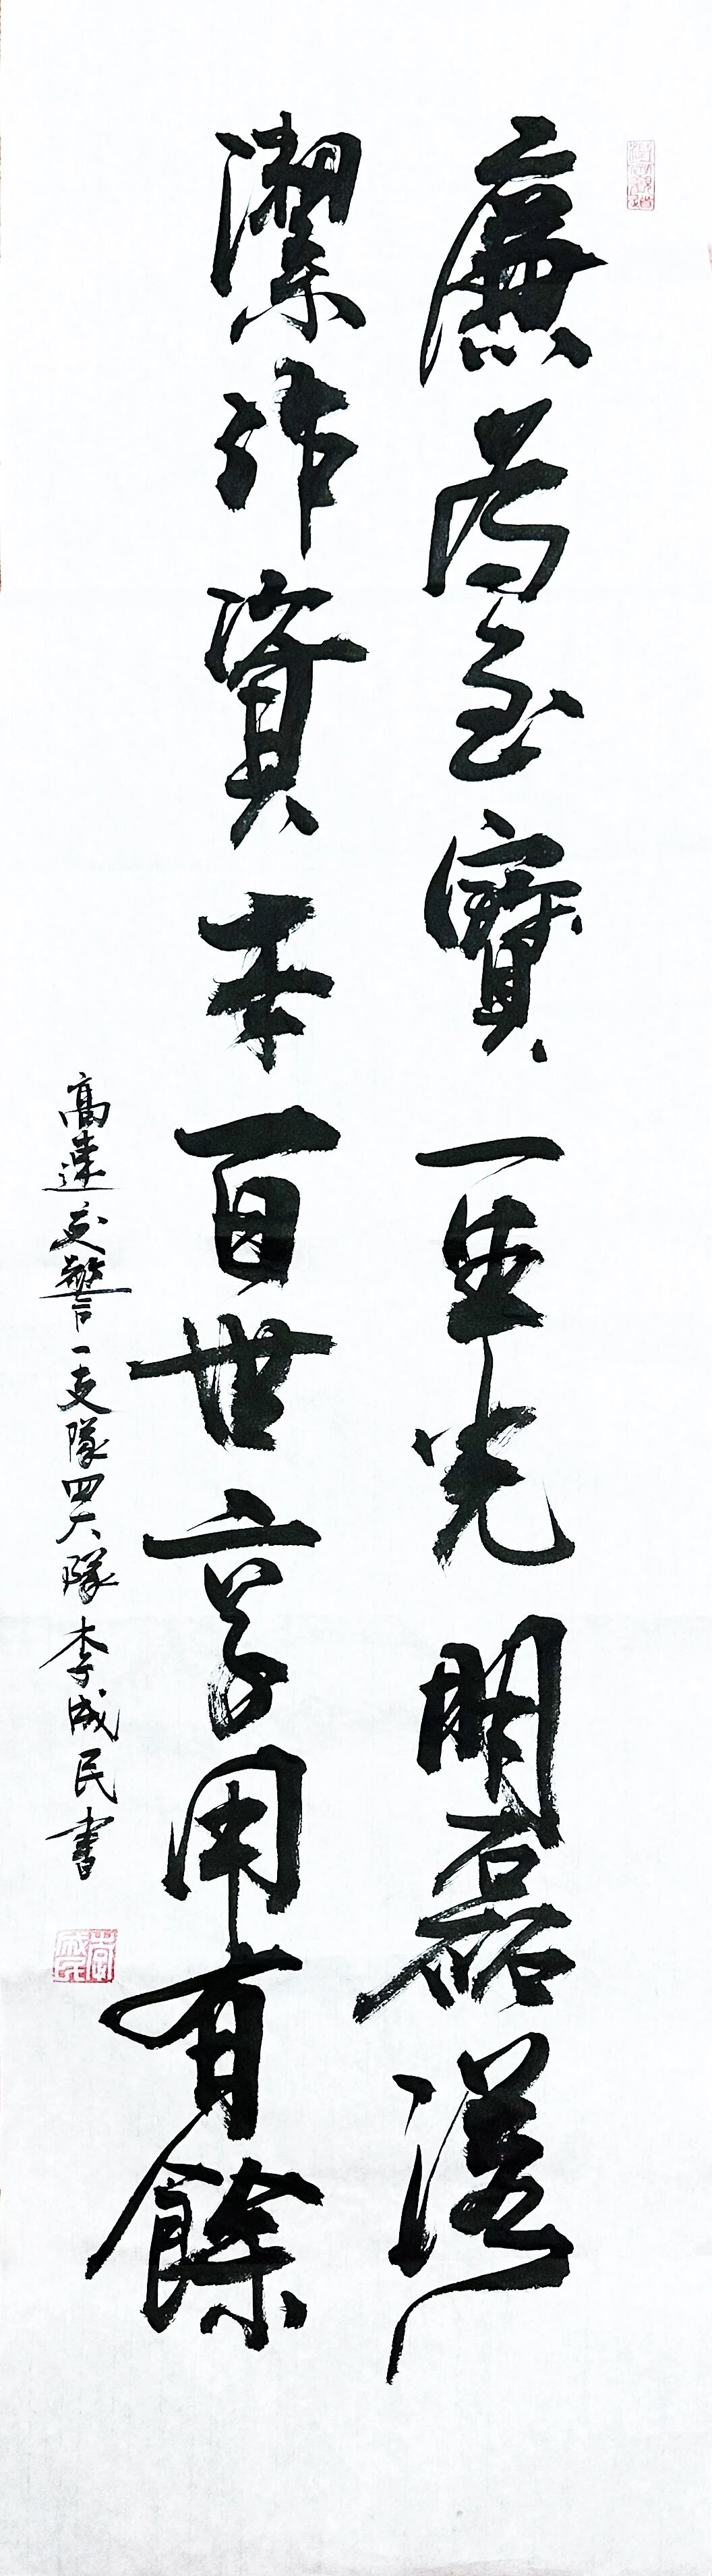 廉為至寶一生光明磊落
潔作資本百世享用有餘
高速交警一支隊四大隊李成民書
李成民